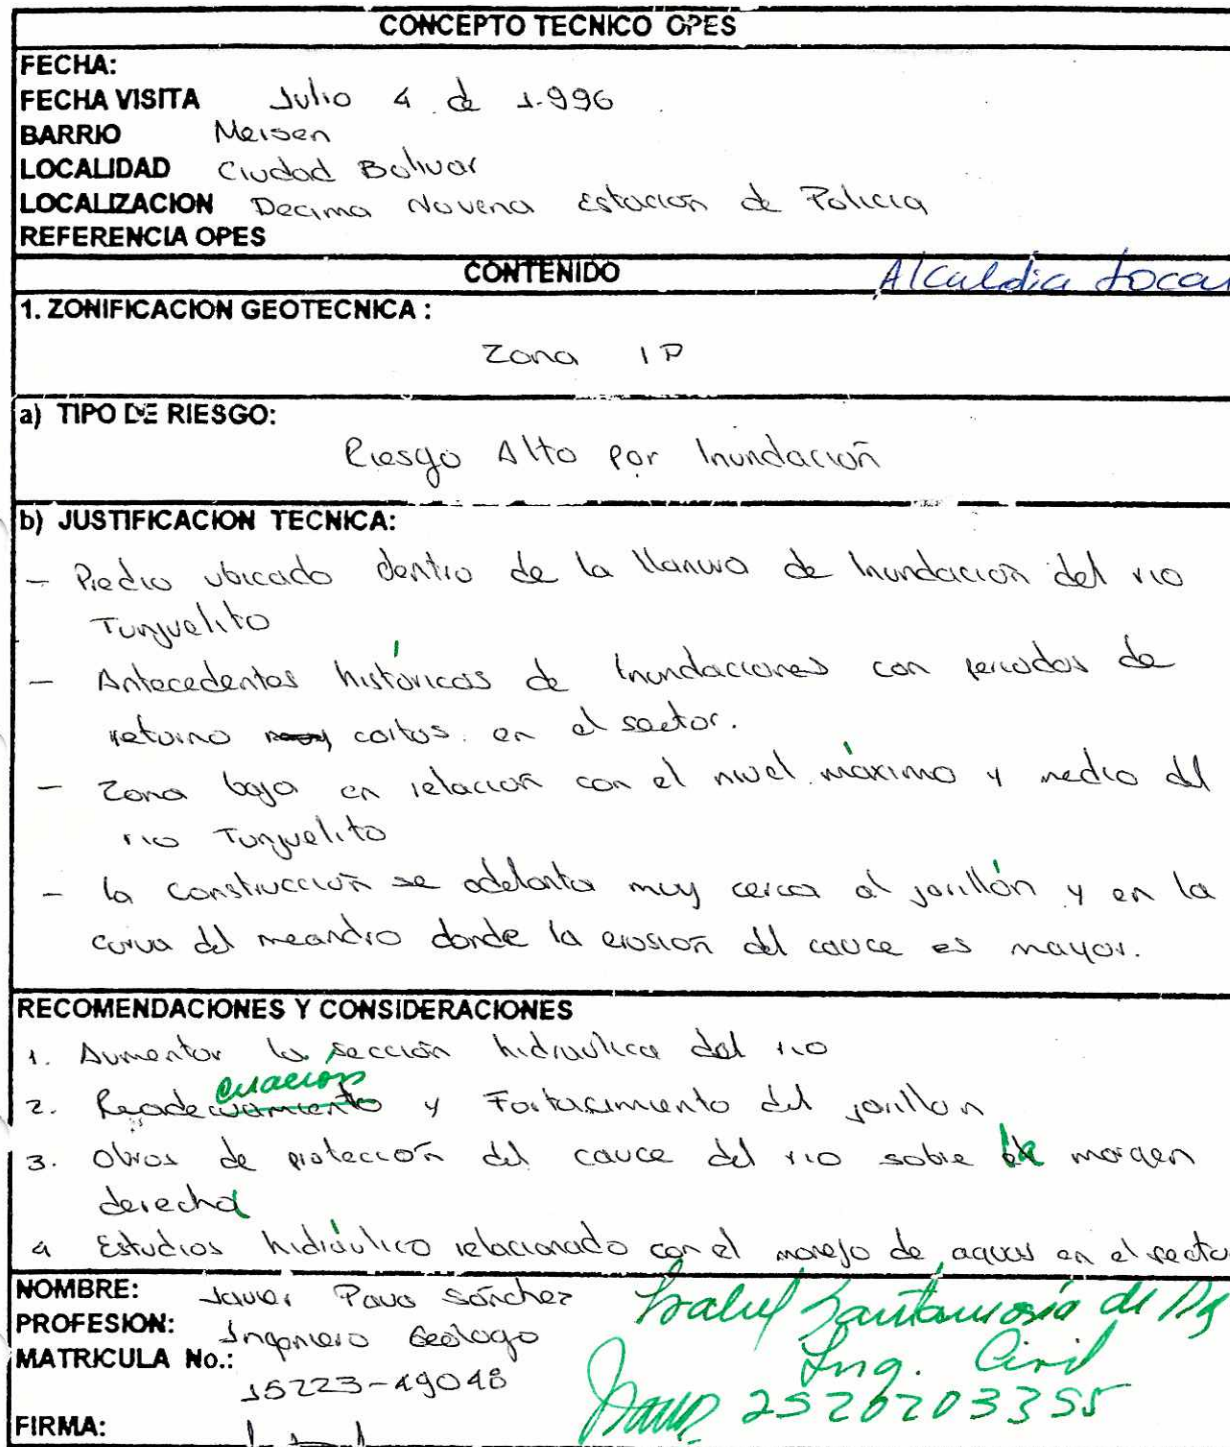 CONCEPTO TECNICO OPES
FECHA:
FECHA VISITA Julio 4 de 1.996
BARRIO Meisen
LOCALIDAD Ciudad Bolivar
LOCALIZACION Decima Novena Estación de Policia
REFERENCIA OPES
CONTENIDO Alcaldia Local
1. ZONIFICACION GEOTECNICA :
Zona 1P
a) TIPO DE RIESGO:
Riesgo Alto por Inundación
b) JUSTIFICACION TECNICA:
- Predio ubicado dentro de la llanura de Inundación del rio
Tunjuelito
- Antecedentes históricos de Inundaciones con periodos de
retorno cortos en el sector.
- Zona baja en relación con el nivel máximo y medio del
rio Tunjuelito
- la construcción se adelanta muy cerca al jarillón y en la
curva del meandro donde la erosión del cauce es mayor.
RECOMENDACIONES Y CONSIDERACIONES
1. Aumentar la sección hidraulica del rio
2. Readecuación y Fortacimiento del jarillon
3. Obras de protección del cauce del rio sobre la margen
derecha
4 Estudios hidráulico relacionado con el manejo de aguas en el sector
NOMBRE: Javier Pava Sánchez
PROFESION: Ingeniero Geologo
MATRICULA No.:
15223-49048
Santamaría de
Ing. Civil
2520203355
FIRMA: